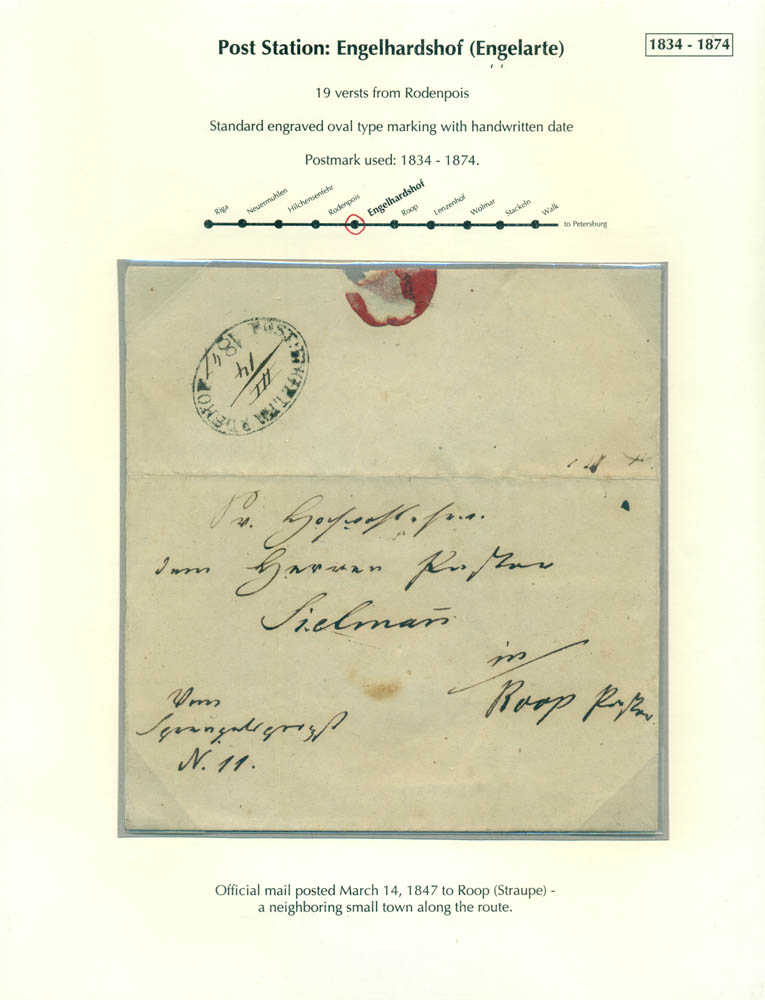 Post Station: Engelhardshof (Engelarte)
1834 - 1874
19 versts from Rodenpois
Standard engraved oval type marking with handwritten date
Postmark used: 1834 - 1874.
Riga Neuermuhlen Hilchensenfehr Rodenpois Engelhardshof Roop Lenzenhof Wolmar Stackeln Walk to Petersburg
POST:ENGELHARDSHOF
1847
14
III
Sr.
dem Herren Pastor
Sielmann
in
Roop Pastor.
Vom
N. 11.
Official mail posted March 14, 1847 to Roop (Straupe) -
a neighboring small town along the route.